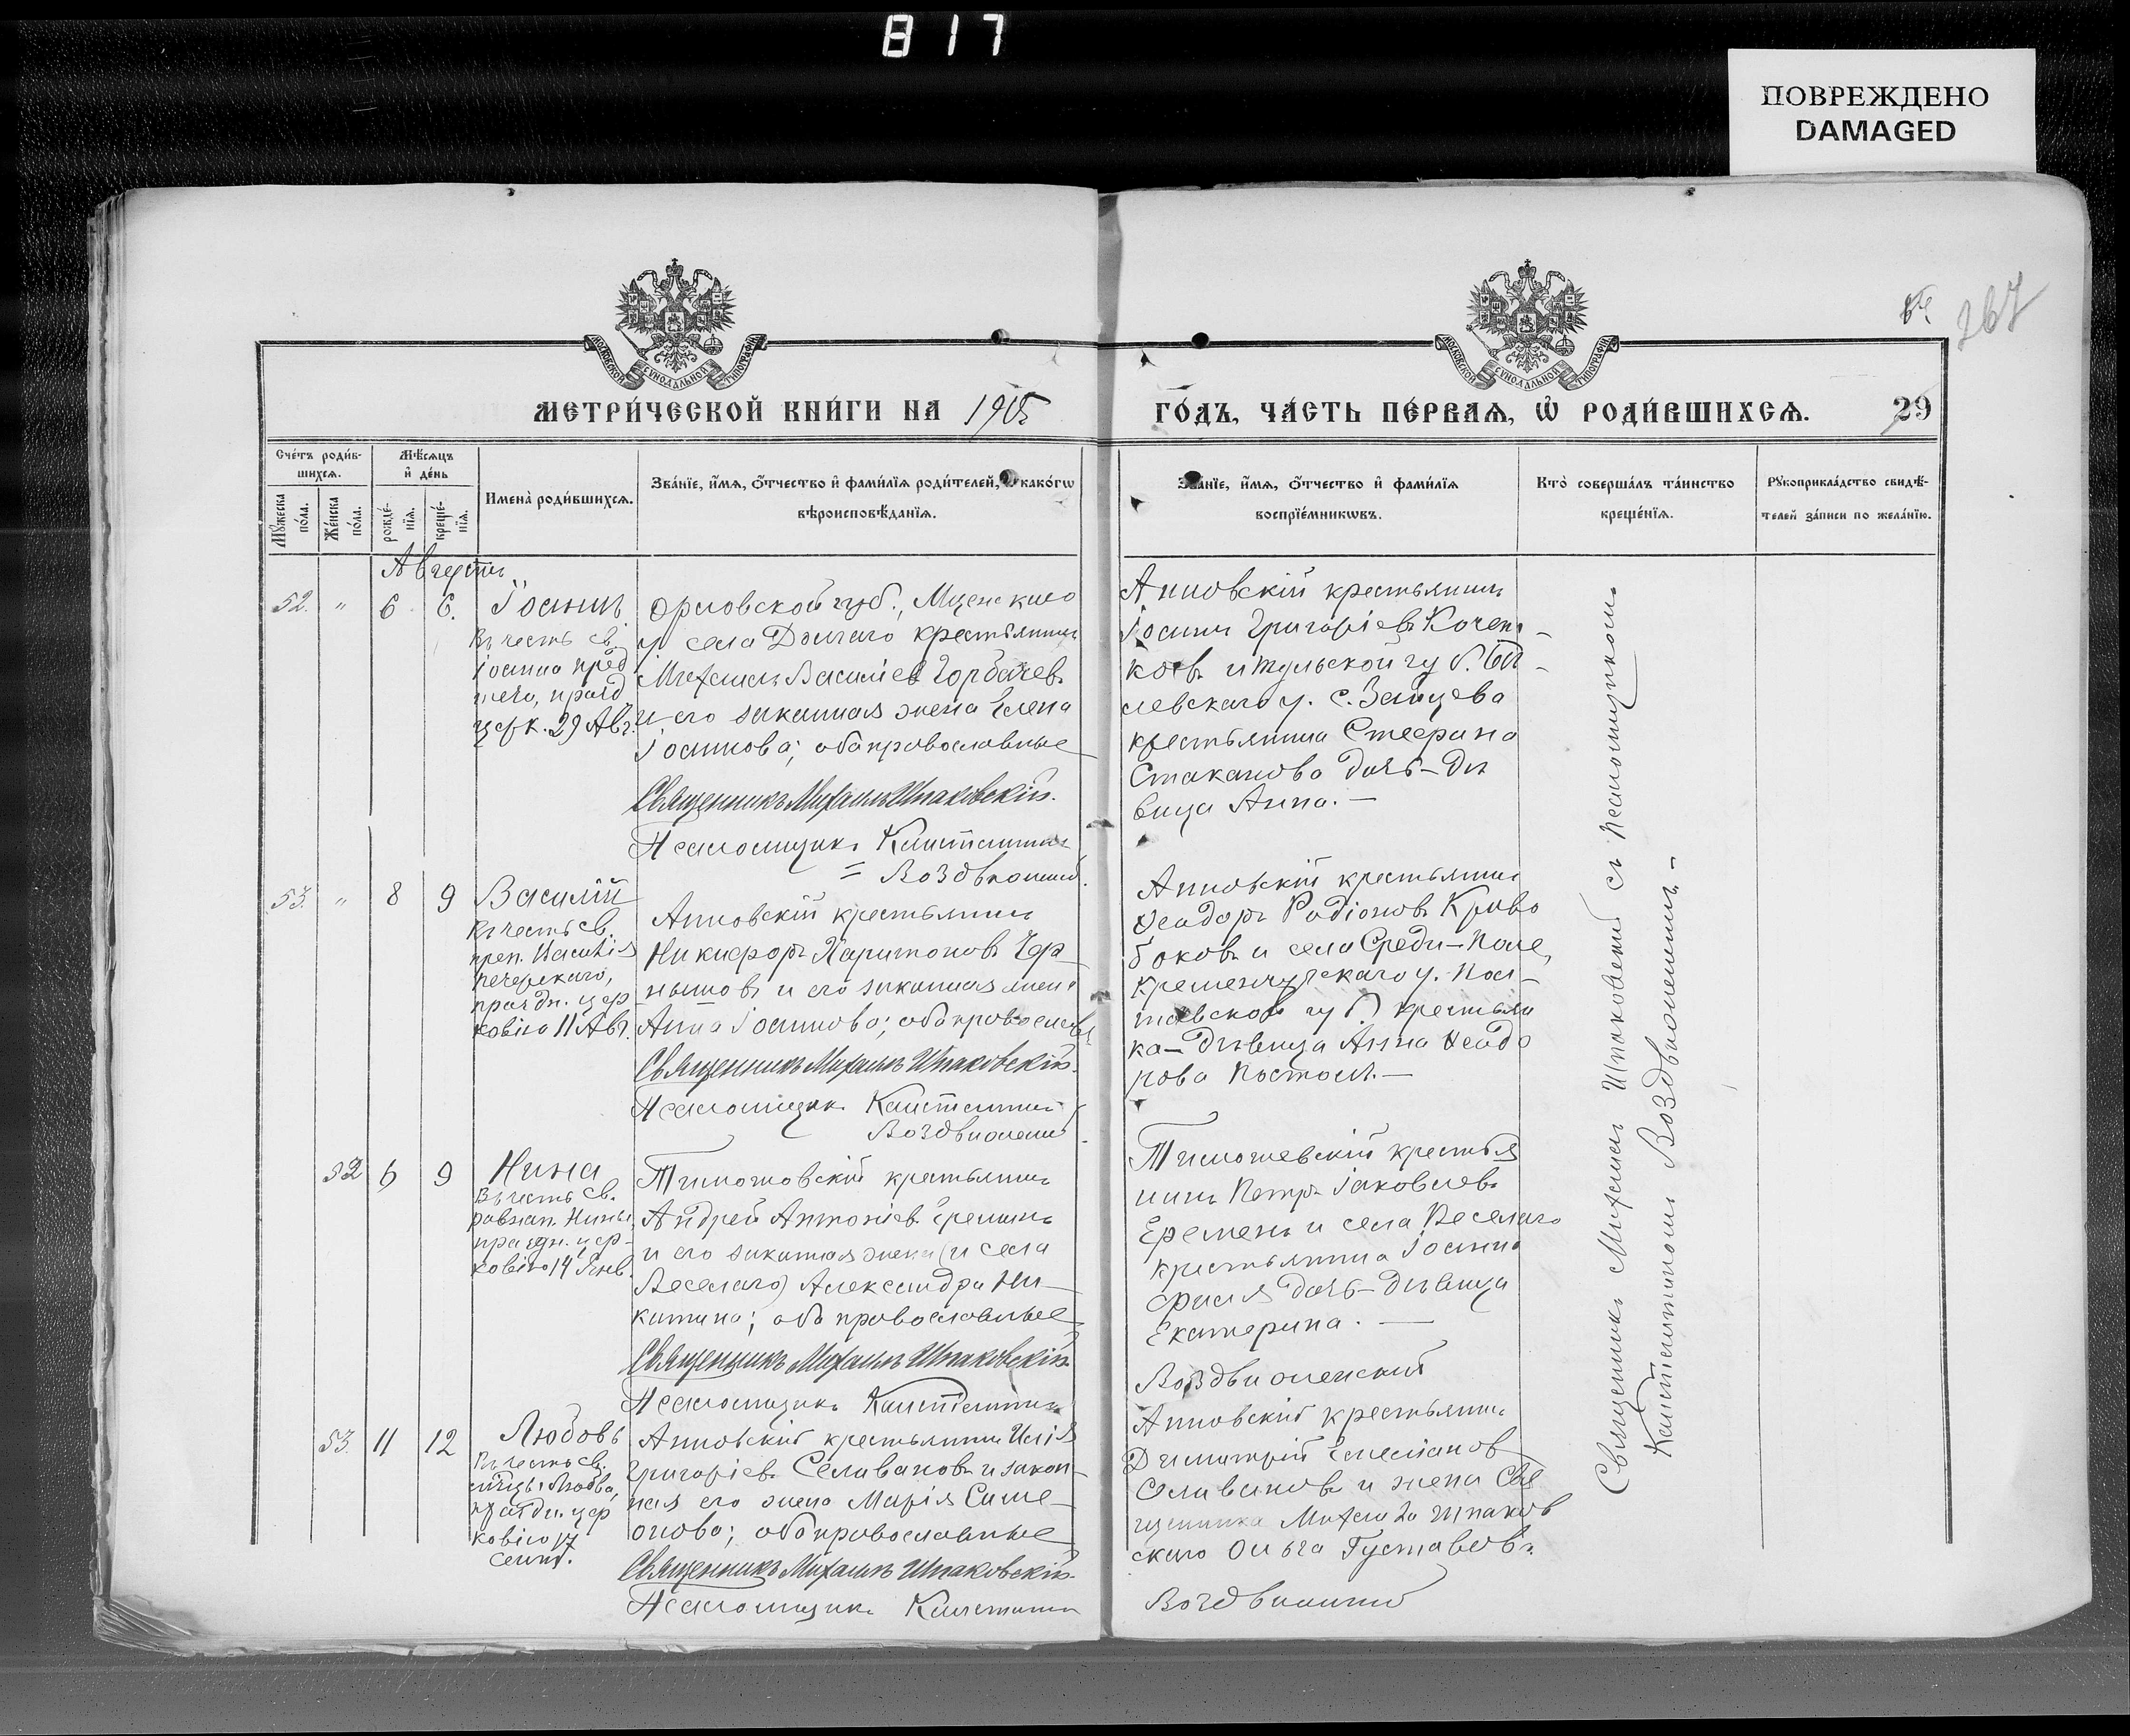 817
ПОВРЕЖДЕНО
DAMAGED
267
МЕТРИ́ЧЕСКОЙ КНИ́ГИ НА 1905
ГО́ДЪ, ЧА́СТЬ ПЕ́РВАѦ, Ѡ҆ РОДИ́ВШИХСѦ.
29
Сче́тъ роди́в-
шихсѧ.
Мѣ́сѧцъ
и҆ де́нь
Мꙋ́жеска
по́ла.
Же́нска
по́ла.
рожде́-
нїѧ.
креще́-
нїѧ.
Имена̀ роди́вшихсѧ.
Зва́нїе, и҆́мѧ, ѻ҆́тчество и҆ фами́лїѧ роди́телей, и҆ како́гѡ
вѣроисповѣ́данїѧ.
Зва́нїе, и҆́мѧ, ѻ҆́тчество и҆ фами́лїѧ
воспрїе́мникѡвъ.
Кто̀ соверша́лъ та́инство
креще́нїѧ.
Рꙋкоприкла́дство свидѣ́-
телей за́писи по жела́нїю.
Августъ
52. " 6 6. Іоаннъ
Въ честь св.
Іоанна пред
течи, празд
церк. 29 Авг.
Орловской губ., Мценскаго
у села Долгаго крестьянинъ
Михаилъ Василіев Горбачев
и его законная жена Елена
Іоаннова; оба православные
Священникъ Михаилъ Шпаковскій.
Псаломщикъ Константинъ
= Воздвиженск.
Анновскій крестьянинъ
Іоаннъ Григоріев Кочет-
ков и Тульской губ. Бѣ-
левскаго у. с. Зайцева
крестьянина Стефана
Стаканова дочь-дѣ
вица Анна. —
53. " 8 9 Василій
Въ честь св.
преп. Василія
Печерскаго,
праздн. цер
ковію 11 Авг.
Анновскій крестьянинъ
Никифоръ Харитонов Чер
нышов и его законная жена
Анна Іоаннова; оба православн
Священникъ Михаилъ Шпаковскій.
Псаломщикъ Константинъ
Воздвиженск
Анновскій крестьянинъ
Ѳеодоръ Родіонов Криво
боков и села Среди-Поле,
Кременчугскаго у. Пол-
тавской губ.) крестьян
ка-дѣвица Анна Ѳеодо
рова Постол. —
52 6 9 Нина
Въ честь св.
равноап. Нины,
праздн. цер-
ковію 14 Янв.
Тимошовскій крестьянинъ
Андрей Антоніев Еремин
и его законная жена (и села
Веселаго) Александра Ни-
китина; оба православные
Священникъ Михаилъ Шпаковскій.
Псаломщикъ Константинъ
Тимошевскій крестья
нинъ Петръ Іаковлев
Еремен и села Веселаго
крестьянина Іоанна
дочь-дѣвица
Екатерина. —
Воздвиженский
53. 11 12 Любовь
Въ честь св.
мчцы Любви,
праздн. цер
ковію 17
Сент.
Анновскій крестьянинъ Илія
Григоріев Селиванов и закон-
ная его жена Марія Симе-
онова; оба православные
Священникъ Михаилъ Шпаковскій.
Псаломщикъ Константинъ
Анновскій крестьянинъ
Димитрій
Селиванов и жена Свя
щенника Михаила Шпаков
скаго Ольга Густавов.
Воздвиженский
Священникъ Михаилъ Шпаковскій съ Псаломщикомъ
Константиномъ Воздвиженскимъ. —